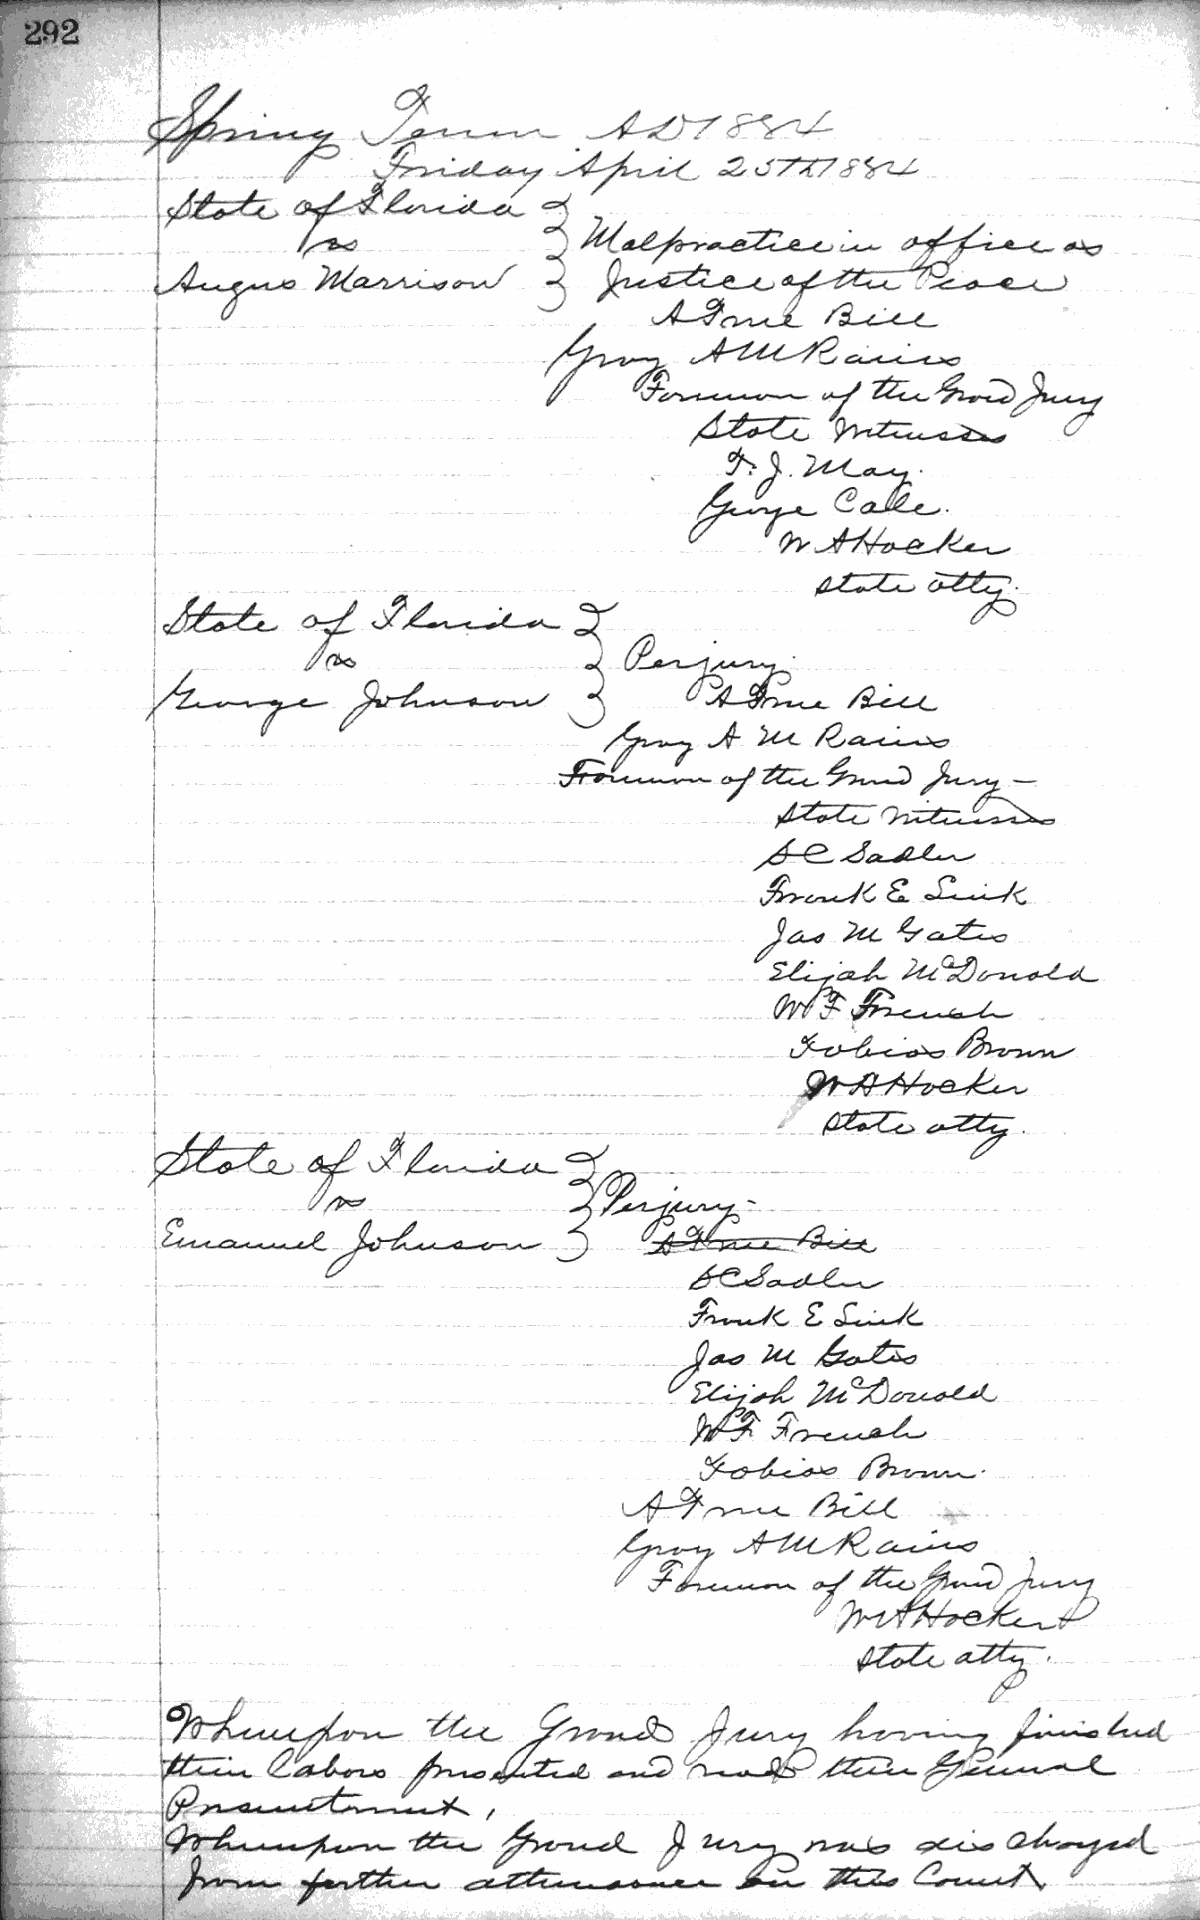 292
Spring Term AD 1884
Friday April 25th 1884
State of Florida
vs
Malpractice in office as
Angus Marrison
Justice of the Peace
A True Bill
Gray A M Rains
Foreman of the Grand Jury
State Witnesses
F. J. May.
George Cale.
W A Hocker
state atty.
State of Florida
vs
Perjury.
George Johnson
A True Bill
Gray A M Rains
Foreman of the Grand Jury -
State Witnesses
S C Sadler
Frank E Sink
Jas M Gates
Elijah McDonald
W F French
Tobias Brown
W A Hocker
state atty.
State of Florida
vs
Perjury -
Emanuel Johnson
A True Bill
S C Sadler
Frank E Sink
Jas M Gates
Elijah McDonald
W F French
Tobias Brown.
A True Bill
Gray A M Rains
Foreman of the Grand Jury
W A Hocker
state atty.
Whereupon the Grand Jury having finished
their labors presented and read their General
Presentment,
Whereupon the Grand Jury was discharged
from further attendance on this Court